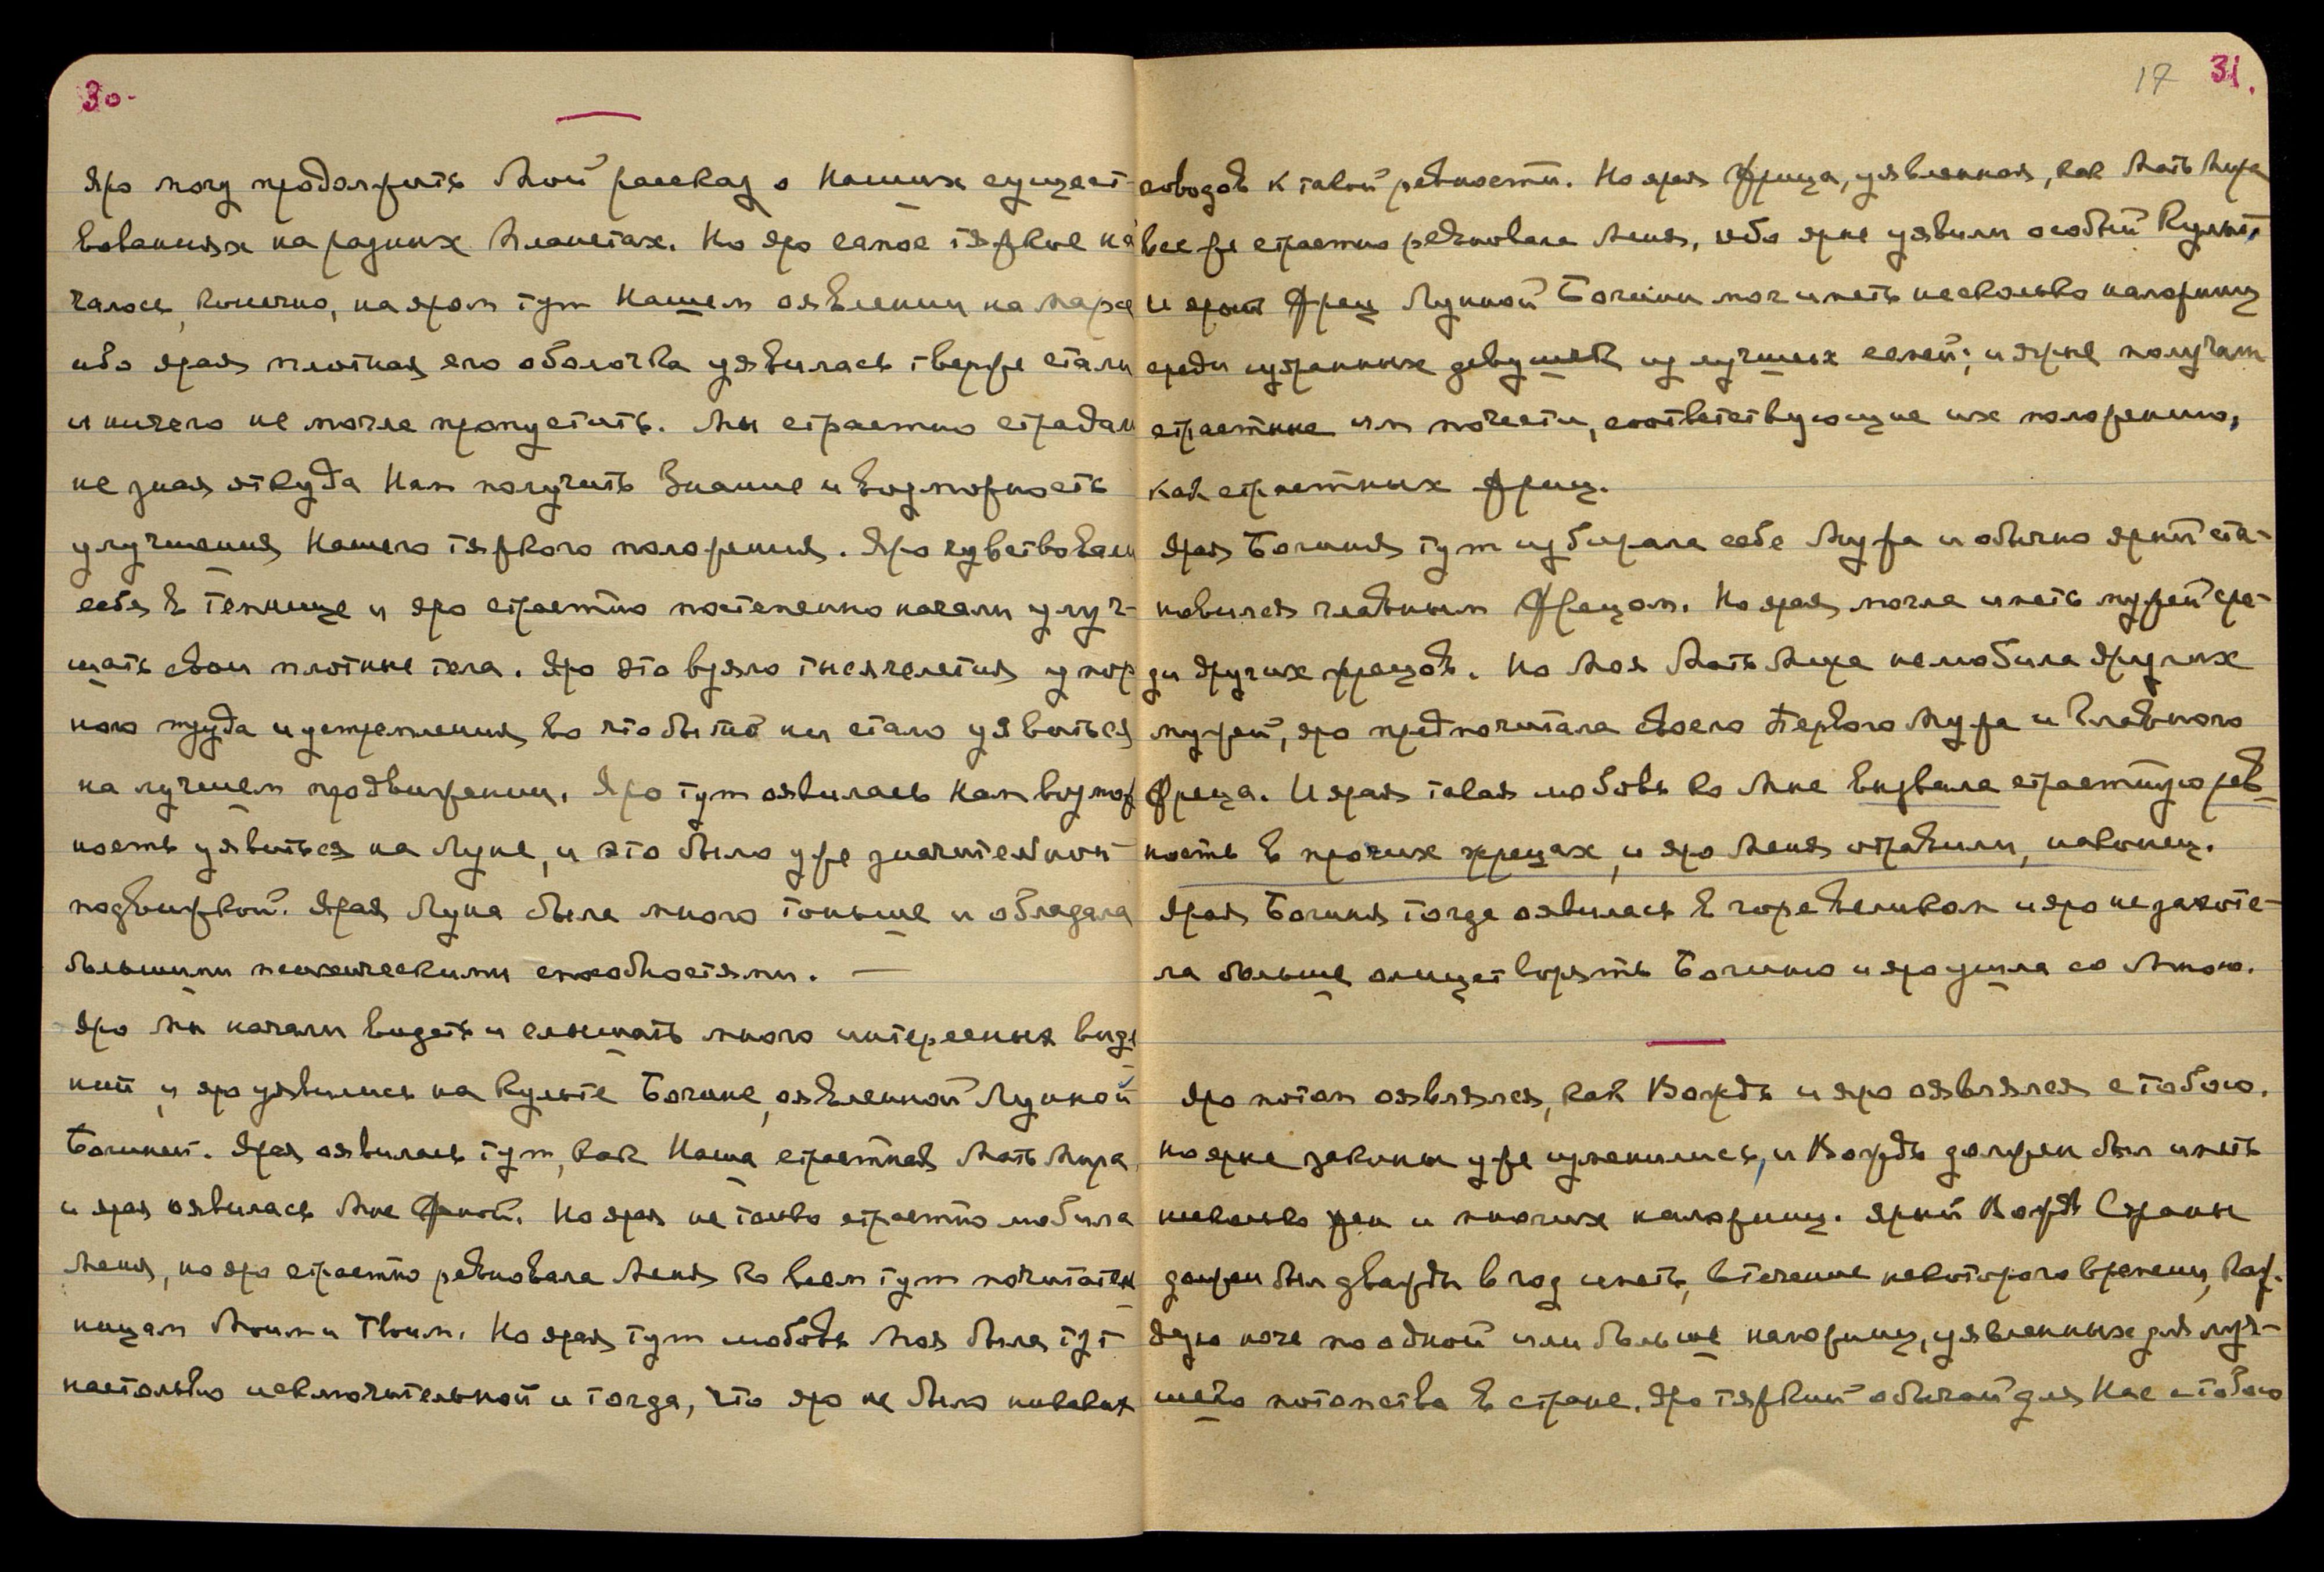 30.
Яро могу продолжить Мой рассказ о Наших сущест-
вованиях на разных Планетах. Но яро самое тяжкое на-
чалось, конечно, на яром тут Нашем оявлении на Марсе
ибо ярая плотная его оболочка уявилась тверже стали
и ничего не могла пропустить. Мы страстно страдали
не зная откуда Нам получить Знание и возможность
улучшения Нашего тяжкого положения. Яро чувствовали
себя в темнице и яро страстно постепенно начали улуч-
шать свои плотные тела. Яро это взяло тысячелетия упор
ного труда и устремления, во что бы то ни стало уявиться
на лучшем продвижении. Яро тут оявилась Нам возмож
ность уявиться на Луне, и это было уже значительной
подвижкой. Ярая Луна была много тоньше и обладала
большими психическими способностями. —
Яро мы начали видеть и слышать много интересных виде
ний и яро уявились на Культе Богине, оявленной Лунной
Богиней. Ярая оявилась тут, как Наша страстная Мать Мира,
и ярая оявилась Мне Женой. Но ярая не только страстно любила
Меня, но яро страстно ревновала Меня ко всем тут почитатель
ницам Моим и Твоим. Но ярая тут любовь Моя была тут
настолько исключительной и тогда, что яро не было никаких
17 31.
поводов к такой ревности. Но ярая Жрица, уявленная, как Мать Мира
все же страстно ревновала Меня, ибо ярые уявили особый Культ,
и ярый Жрец Лунной Богини мог иметь несколько наложниц
среди избранных девушек из лучших семей; и ярые получали
страстные им почести, соответствующие их положению,
как страстных жриц.
Ярая Богиня тут избирала себе Мужа и обычно ярый ста-
новился главным Жрецом. Но ярая могла иметь мужей сре-
ди других жрецов. Но Моя Мать Мира не любила других
мужей, яро предпочитала своего Первого Мужа и Главного
Жреца. И ярая такая любовь ко Мне вызвала страстную рев-
ность в прочих жрецах, и яро Меня отравили, наконец.
Ярая Богиня тогда оявилась в горе великом и яро не захоте-
ла больше олицетворять Богиню и яро ушла со Мною.
Яро потом оявлялся, как Вождь и яро оявлялся с тобою.
но ярые законы уже изменились, и Вождь должен был иметь
несколько жен и многих наложниц. Ярый Вождь Страны
должен был дважды в год иметь, в течение некоторого времени, каж-
дую ночь по одной или больше наложниц, уявленных для луч-
шего потомства в стране. Яро тяжкий обычай для Нас с тобою